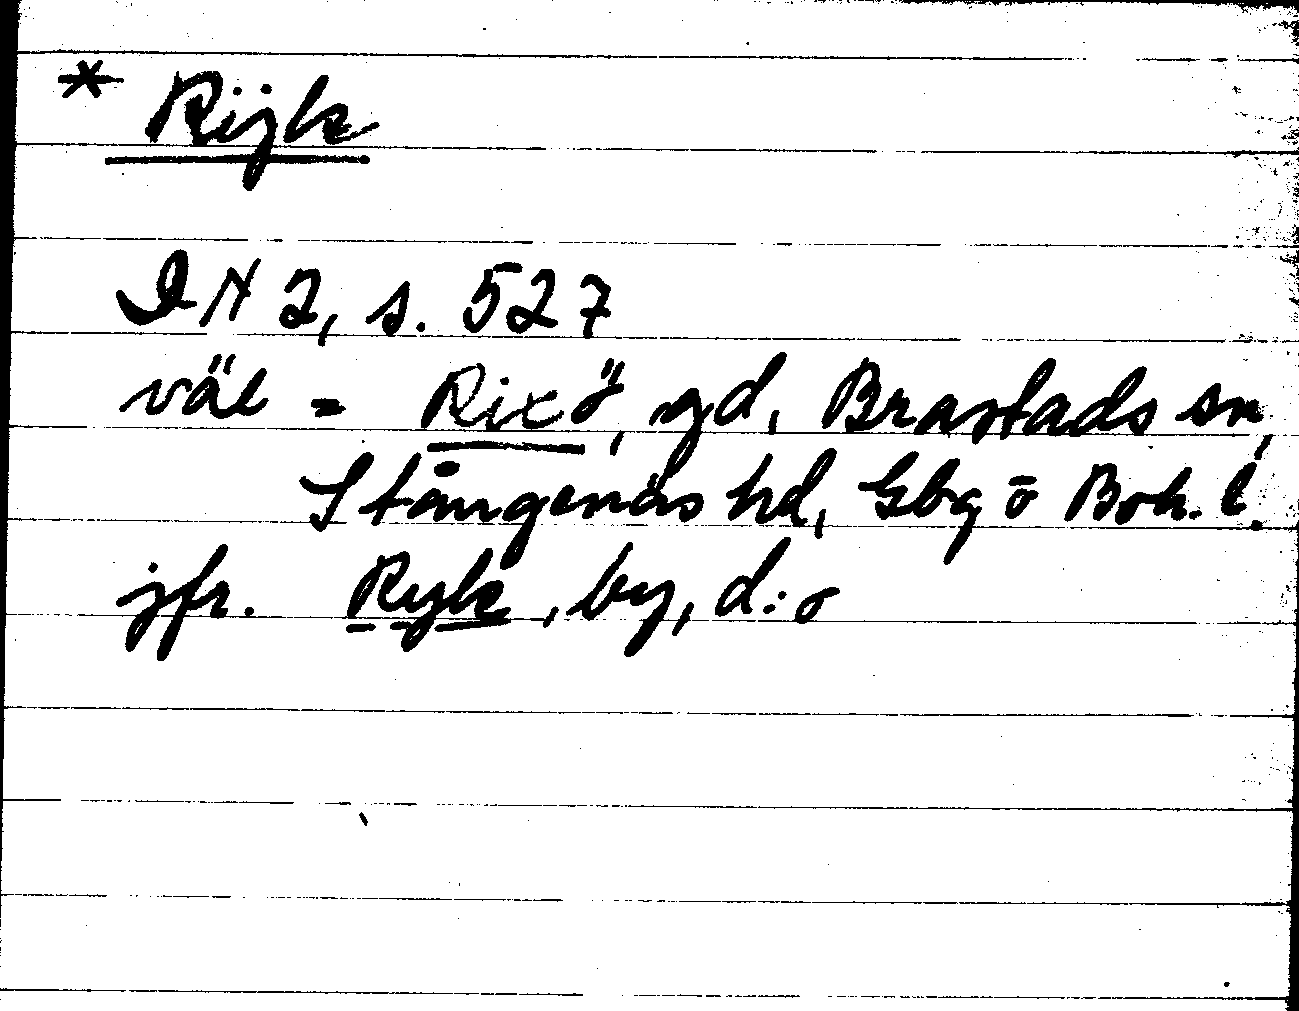 * Rijk
DN 2, s. 527
väl = Rixö, gd, Brastads sn,
Stångenäs hd, Gbg o Boh. l.
jfr. Ryk, by, d:o